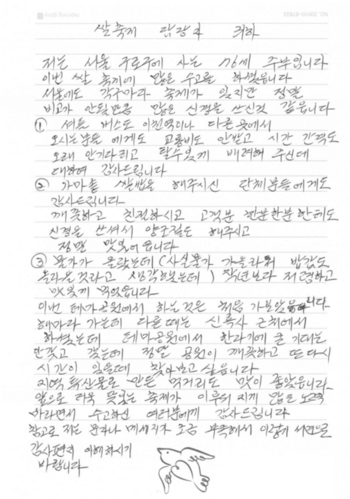 쌀축제 담당자 귀하
저는 서울 구로구에 사는 76세 주부입니다
이번 쌀 축제에 많은 수고를 하셨읍니다
서울에도 각구마다 축제가 있지만 정말
비교가 안될만큼 많은 신경을 쓰신것 같읍니다
① 셔틀 버스도 이천역이나 다른곳에서
오시는분들에게도 교통비도 안받고 시간 간격도
오래 안기다리고 탈수있게 배려해 주신데
대하여 감사드립니다
② 가마솥 쌀밥을 해주시신 단체분들에게도
감사드립니다
깨끗하고 친절하시고 고객분 한분한분한테도
신경을 쓰셔서 해주시고
정말 맛있어읍니다
③ 물가가 올랐는데 (사실물가 가올라 밥값도
올라줄것라고 생각하였는데) 작년보다 저렴하고
맛있게 먹었읍니다
이번 테마공원에서 하는것은 처음 가보았읍니다
해마다 가는데 다른때는 신륵사 근처에서
하셨는데 테마공원에서 한다기에 큰 기대는
안갖고 갔는데 정말 공원이 깨끗하고 또다시
시간이 있을때 찾아가고 싶읍니다
지역특산물로 만든 먹거리도 맛이 좋았읍니다
앞으로 더욱 멋있는 축제가 이루어 지게 많은 노력
바라면서 수고하신 여러분에게 감사드립니다
참고로 저는 문자나 메세지가 조금 부족해서 이렇게 서면으로
감사편지 이해하시기
바랍니다